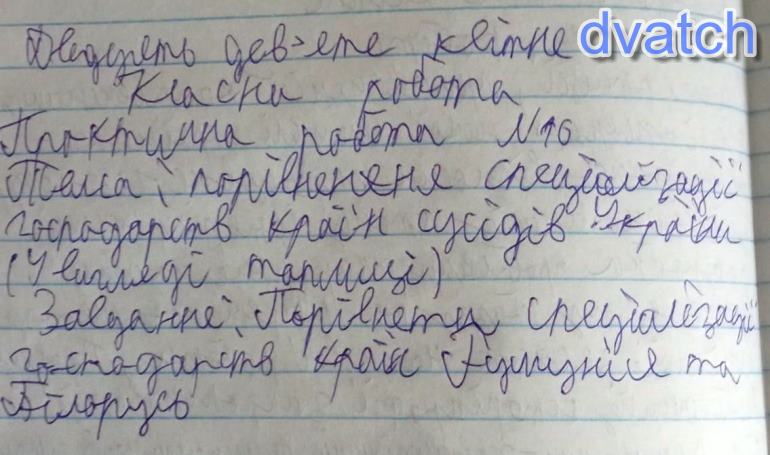 Двадцять дев'яте квітне
dvatch
Класни робота
Практична робота №16
Тема: порівнененя спеціалізації
господарств країн сусідів України
(У вигляді таблиці)
Завданне: Порівнети спеціалізації
господарств країн Румунія та
Білорусь